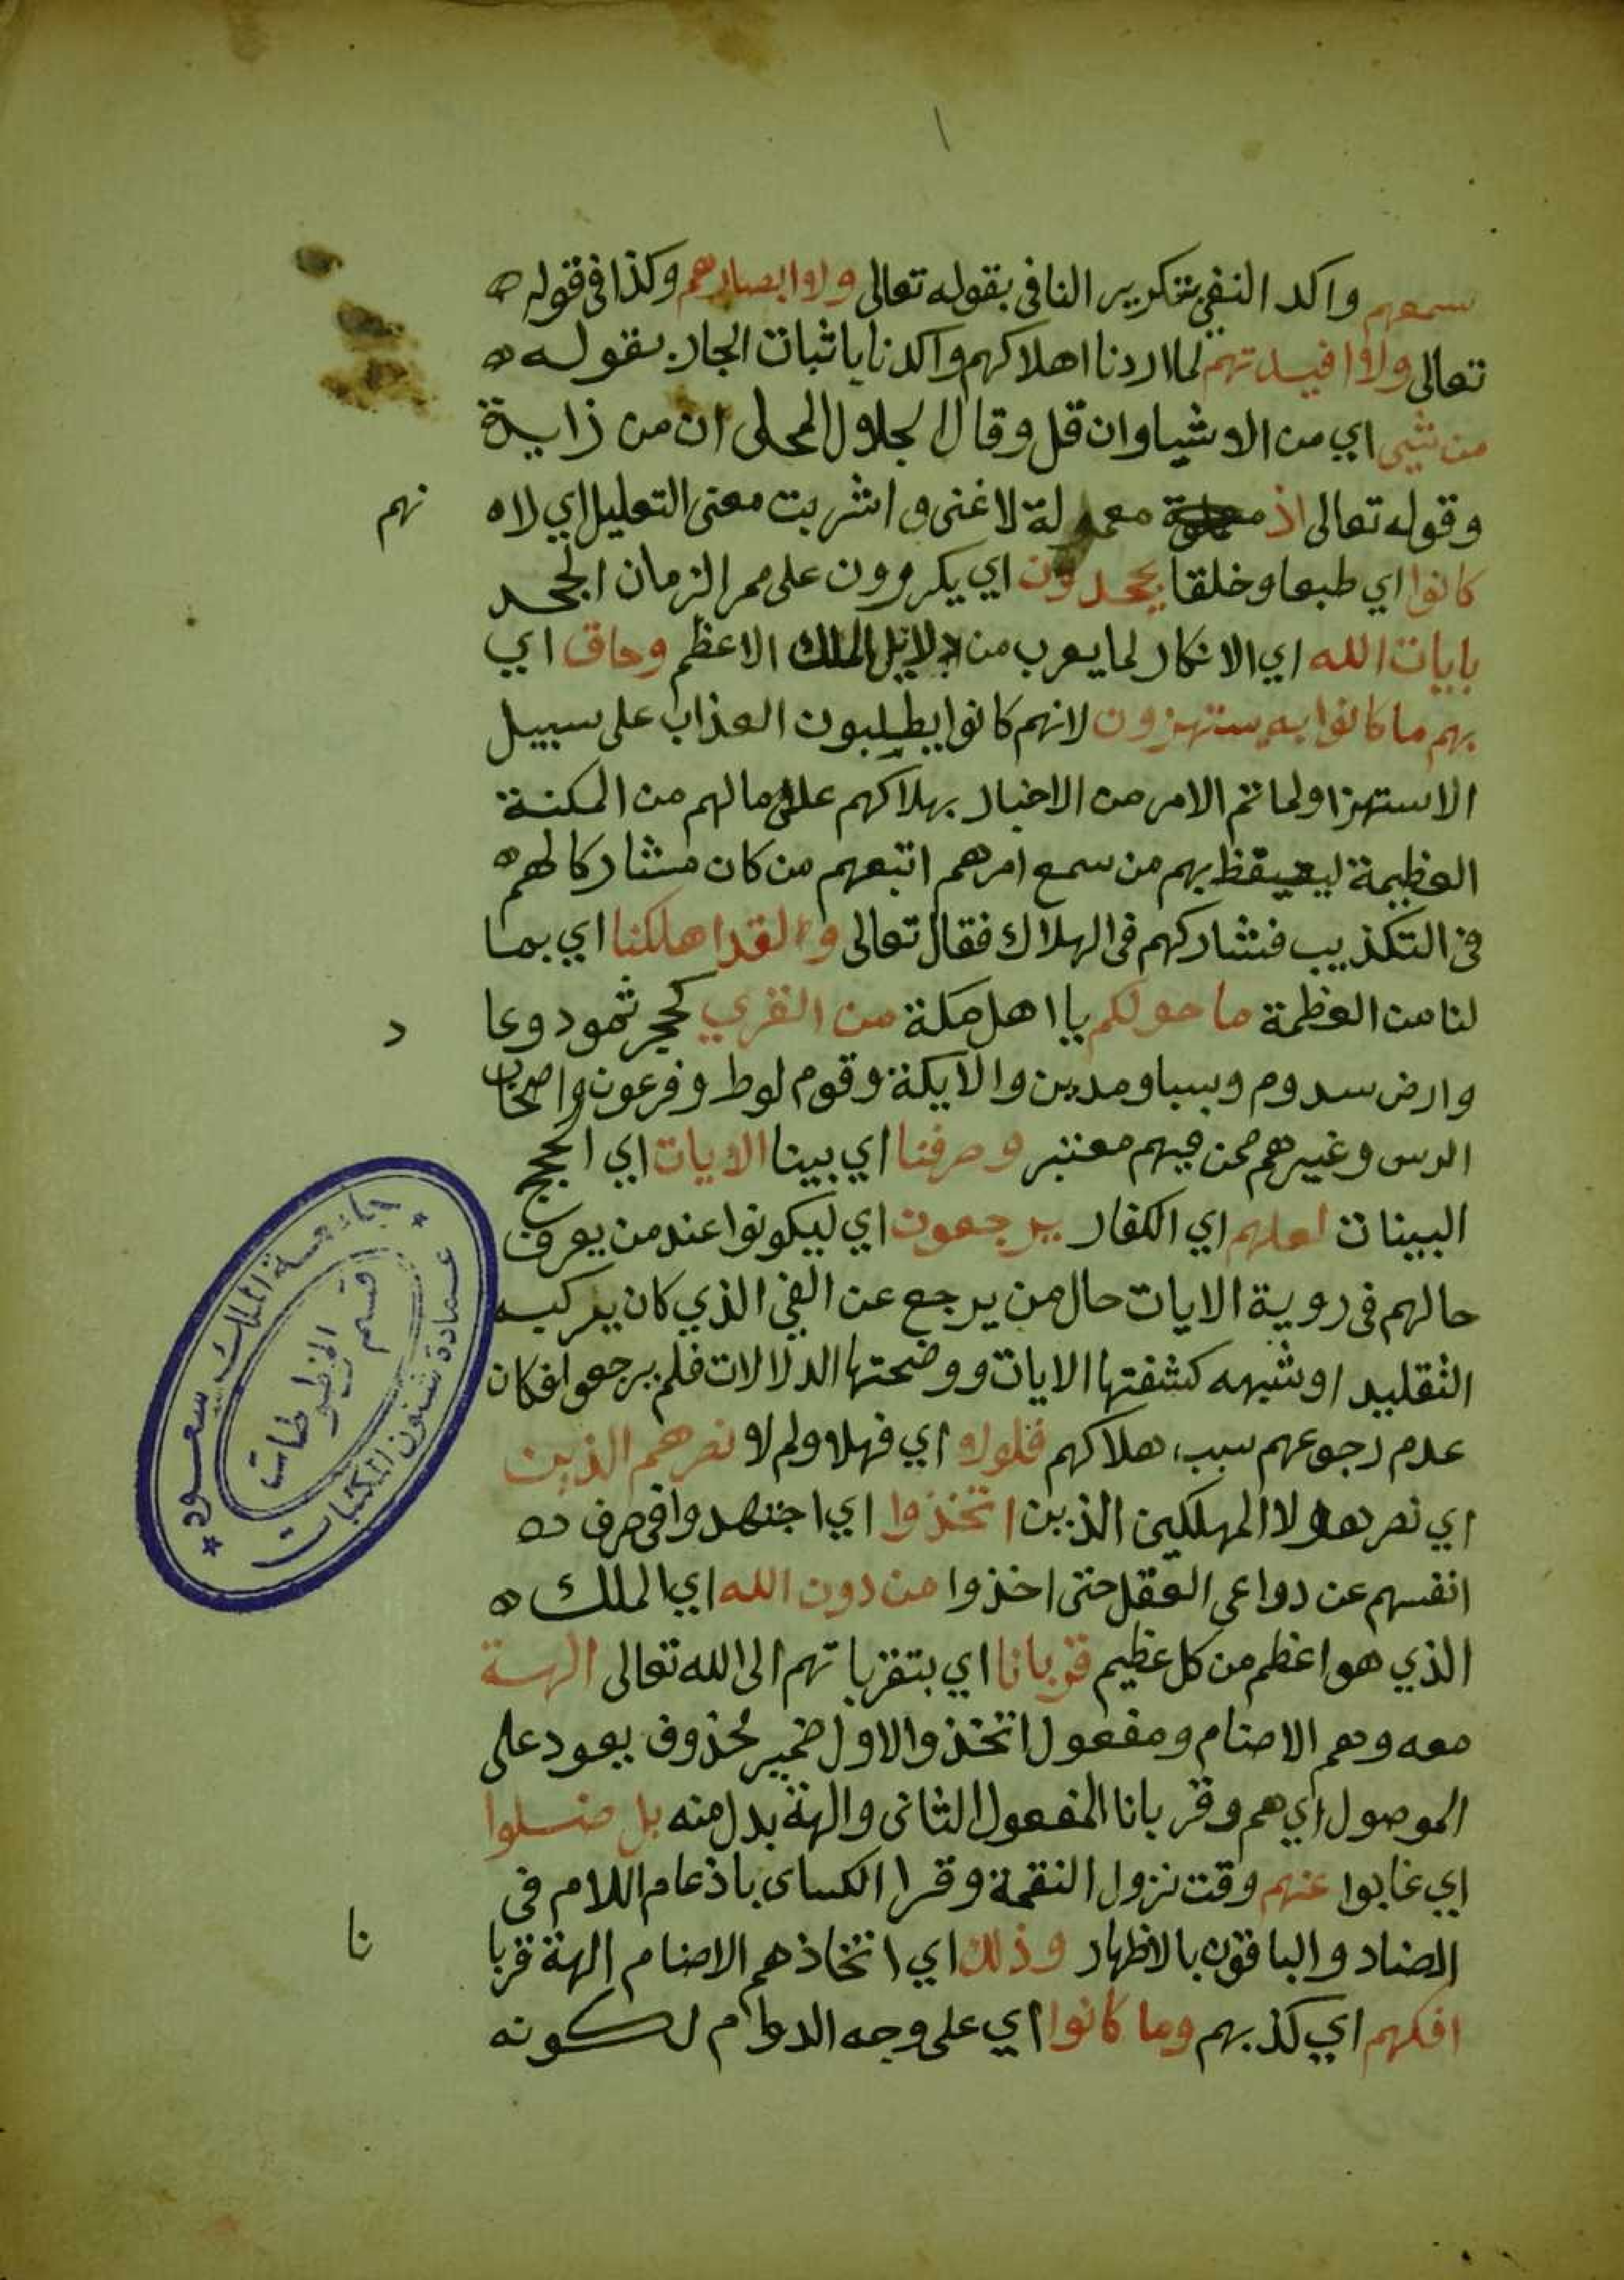 ١
سمعهم واكد النفي بتكرير النافي بقوله تعالى ولا ابصارهم وكذا في قوله
تعالى ولا افيدتهم لما اردنا اهلاكهم واكدنا باثبات الجار بقوله
من شيى اي من الاشيا وان قل وقال الجلال المحلى ان من زايدة
وقوله تعالى اذ معمولة لاغنى واشربت معنى التعليل اي لا نهم
كانوا اي طبعا وخلقا يجحدون اي يكررون على ممر الزمان الجحد
بايات الله اي الانكار لما يعرب من دلايل الملك الاعظم وحاق اي
بهم ما كانوا به يستهزون لانهم كانوا يطلبون العذاب على سبيل
الاستهزا ولما تم الامر من الاخبار بهلاكهم على مالهم من المكنة
العظيمة ليتيقظ بهم من سمع امرهم اتبعهم من كان مشاركا لهم
في التكذيب فشاركهم في الهلاك فقال تعالى ولقد اهلكنا اي بما
لنا من العظمة ما حولكم يا اهل مكة من القري كحجر ثمود وعا د
وارض سدوم وسبا ومدين والايكة وقوم لوط وفرعون واصحاب
الرس وغيرهم ممن فيهم معتبر وصرفنا اي بينا الايات اي الحجج
البينات لعلهم اي الكفار يرجعون اي ليكونوا عند من يعرف
حالهم في روية الايات حال من يرجع عن الغي الذي كان يركبه
التقليد او شبهه كشفتها الايات ووضحتها الدلالات فلم يرجعوا فكان
عدم رجوعهم سبب هلاكهم فلولا اي فهلا ولم لا نصرهم الذين
اي نصر هولا المهلكين الذين اتخذوا اي اجتهدوا في صرف
انفسهم عن دواعى العقل حتى اخذوا من دون الله اي الملك
الذي هو اعظم من كل عظيم قربانا اي بتقرباتهم الى الله تعالى الهة
معه وهم الاصنام ومفعول اتخذوا الاول ضمير محذوف يعود على
الموصول اي هم وقربانا المفعول الثانى والهة بدل منه بل ضلوا
اي غابوا عنهم وقت نزول النقمة وقرا الكساى باذغام اللام فى
الضاد والباقون بالاظهار وذلك اي اتخاذهم الاصنام الهة قربا نا
افكهم اي كذبهم وما كانوا اي على وجه الدوام لكونه
جامعة الملك سعود
قسم المخطوطات
عمادة شئون المكتبات